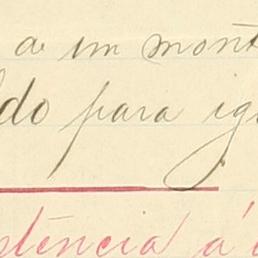 a um mont
do para ig
stência á